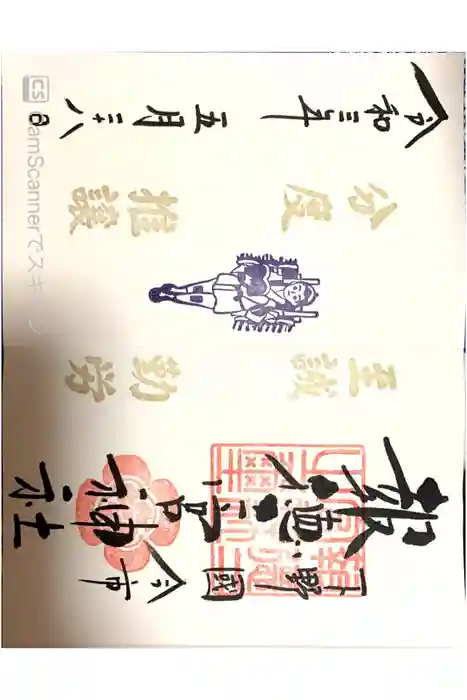 下野國
今市
報徳二宮神社
至誠
勤労
分度
推譲
令和三年
五月二十八日
CS CamScannerでスキ